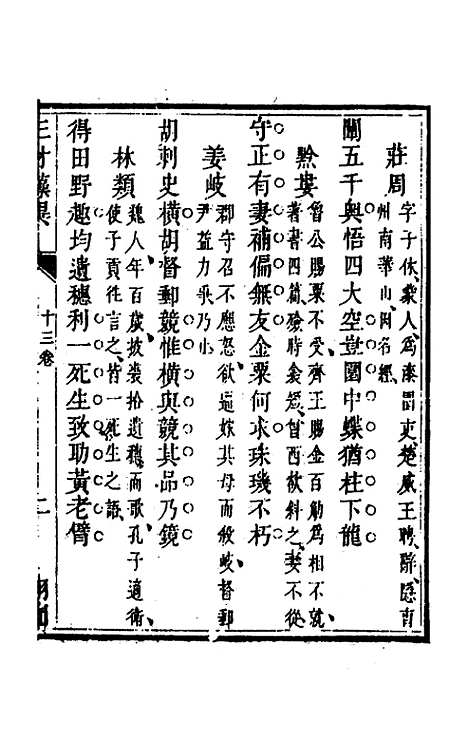 莊周 字子休蒙人爲漆園吏楚威王聘辭隱曹
州南華山因名經
闡五千奧悟四大空豈園中蝶猶柱下龍
黔婁 魯公賜粟不受齊王賜金百觔爲相不就
著書四篇殮時衾短曾西欲斜之妻不從
守正有妻補偏無友金粟何求珠璣不朽
姜岐 郡守召不應怒欲逼嫁其母而殺岐督郵
尹益力爭乃止
胡刺史橫胡督郵競惟橫與競其品乃鏡
林類 魏人年百歲披裘拾遺穗而歌孔子適衛
使子貢往言之皆一死生之語
得田野趣均遺穗利一死生致助黃老臂
三才藻異
十三卷
二